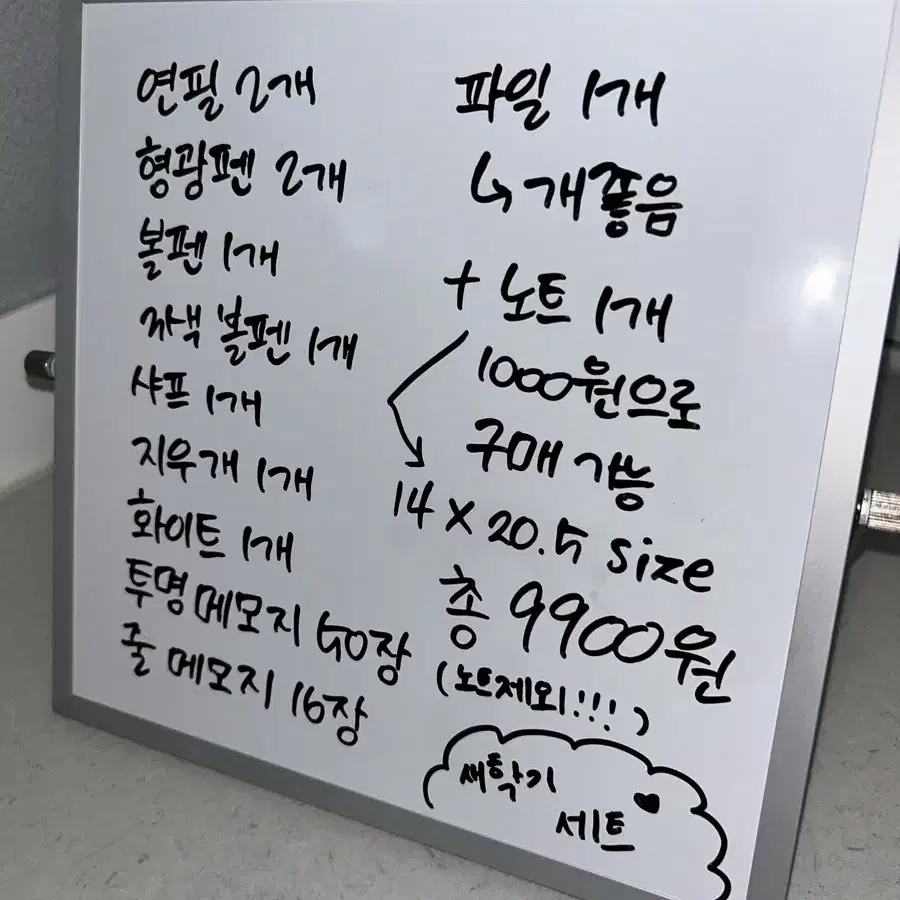 연필 2개
형광펜 2개
볼펜 1개
자색 볼펜 1개
샤프 1개
지우개 1개
화이트 1개
투명 메모지 50장
줄 메모지 16장
파일 1개
↳ 개좋음
+ 노트 1개
1000원으로
구매 가능
14 × 20.5 size
총 9900원
(노트제외!!!)
새학기
세트